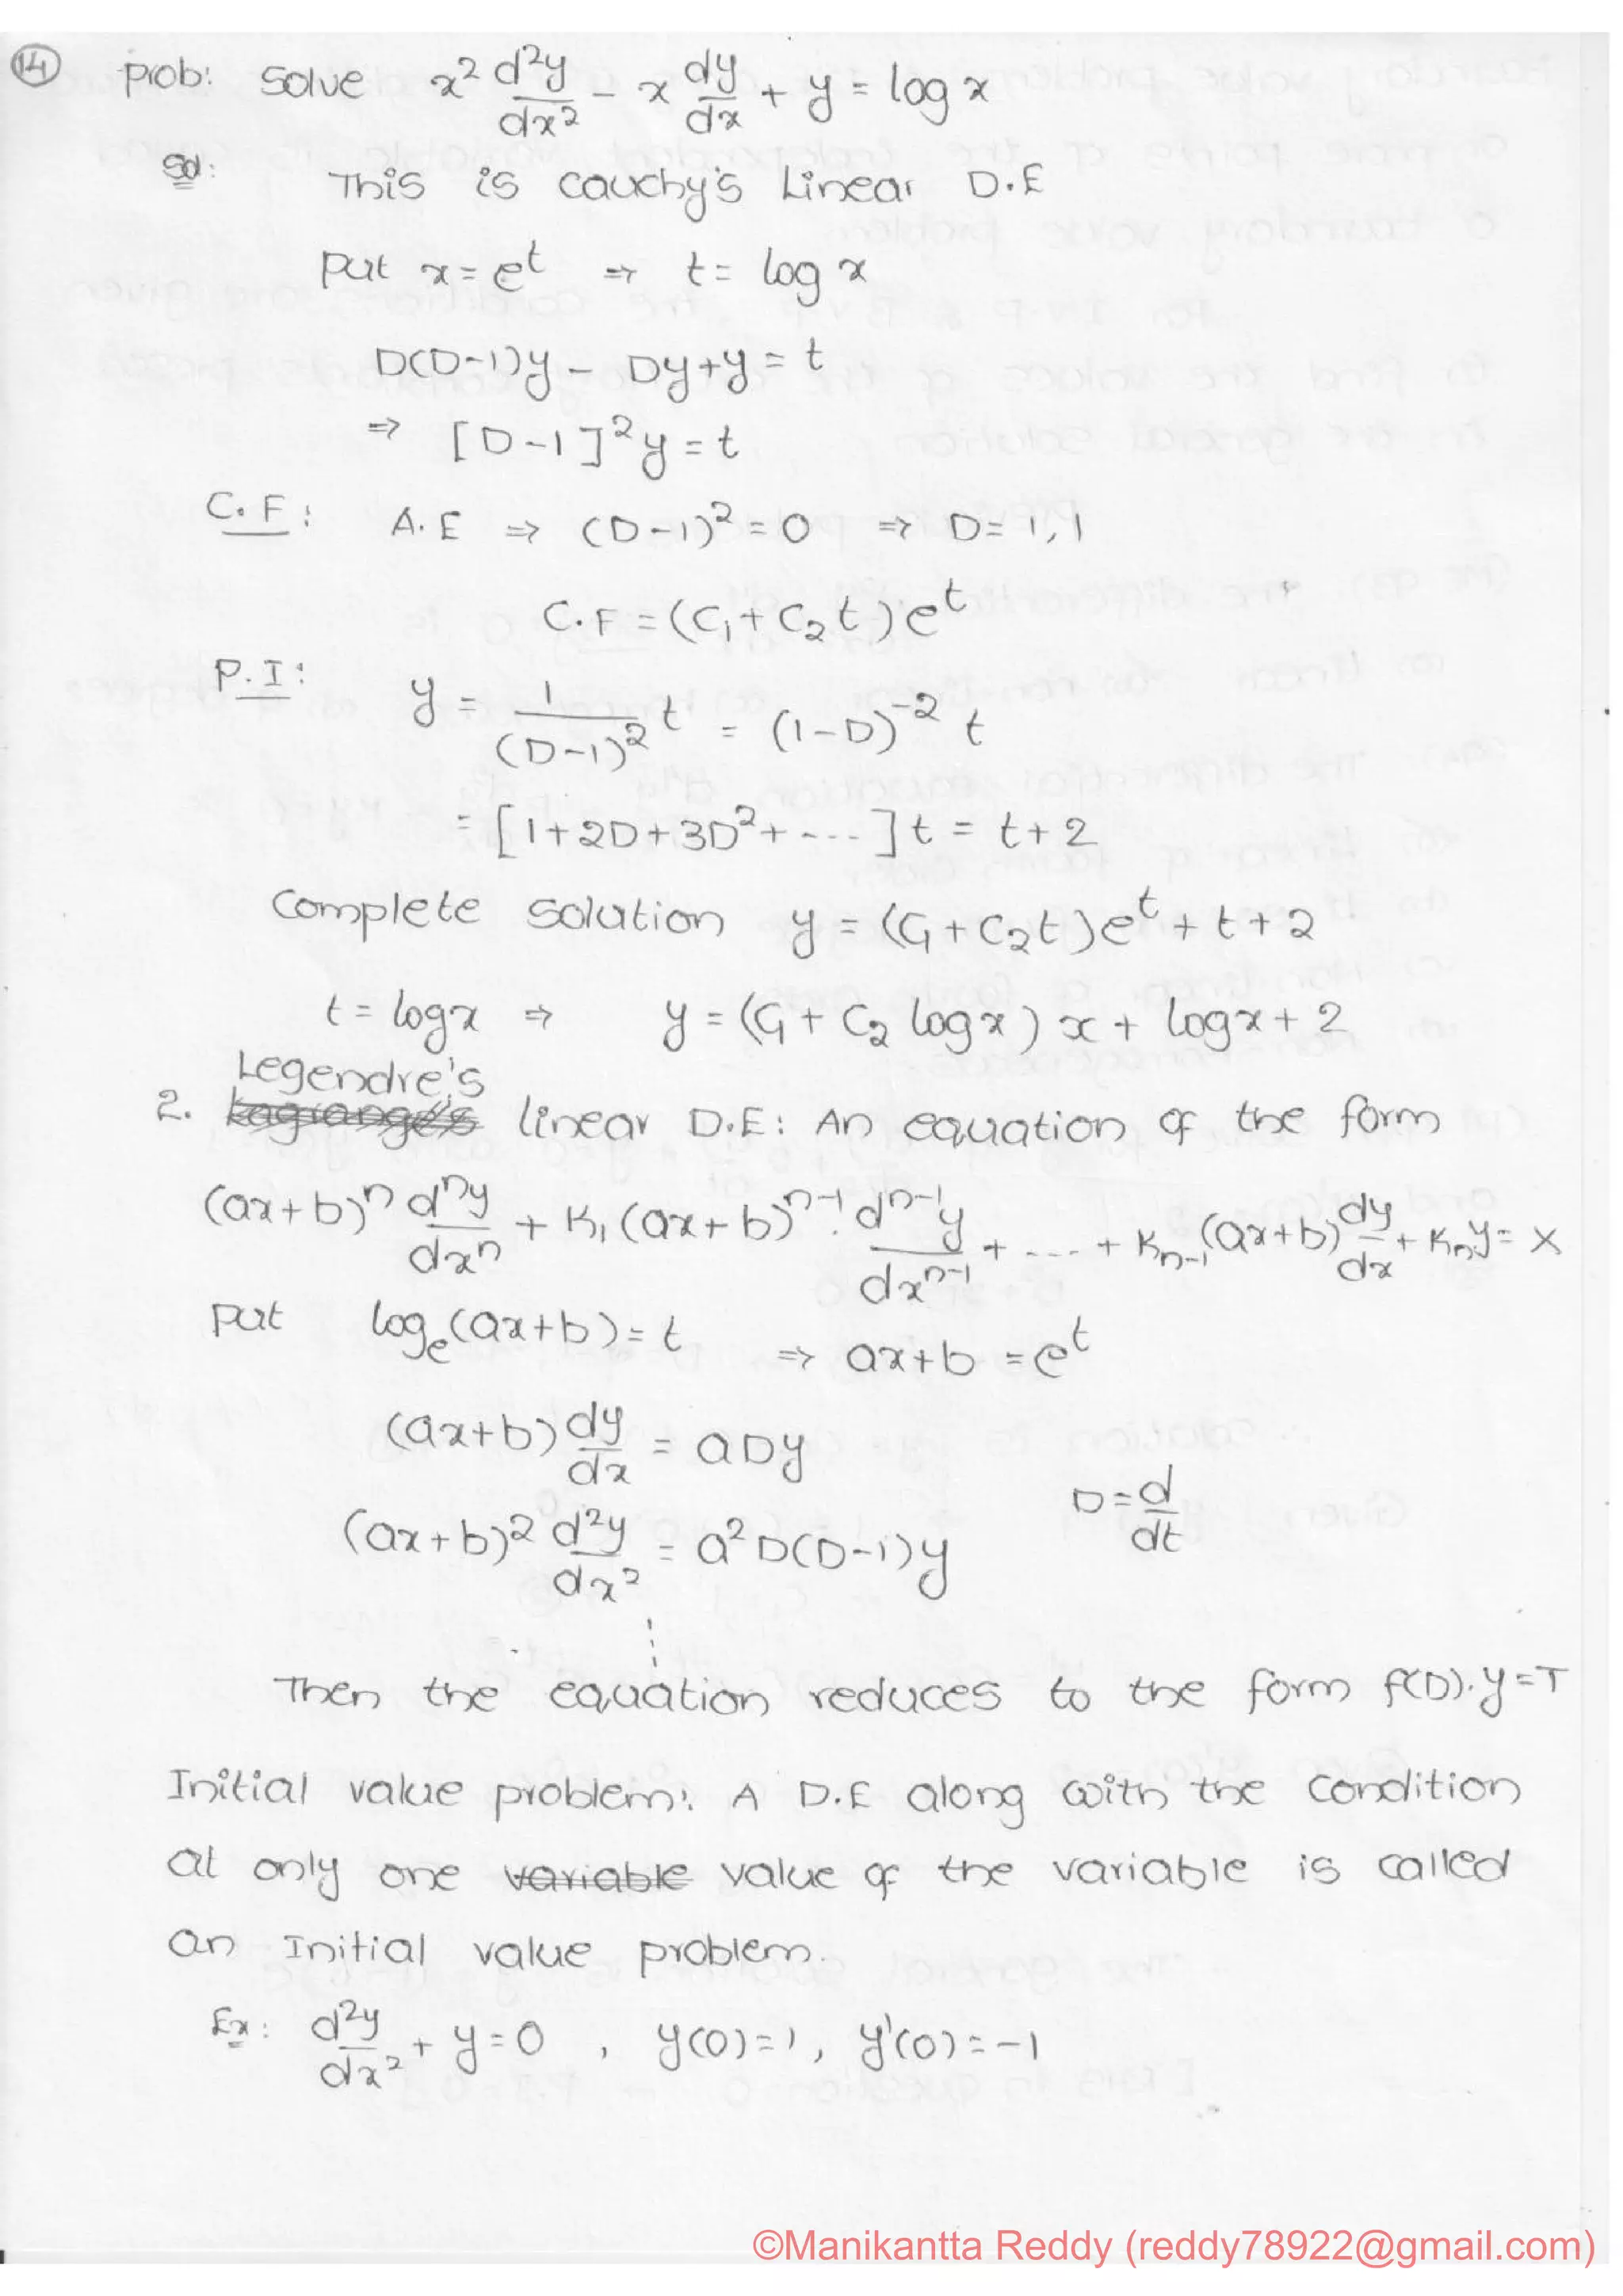 14 Prob: Solve x² d²y/dx² - x dy/dx + y = log x
Sol: This is Cauchy's Linear D.E
Put x = e^t ⇒ t = log x
D(D-1)y - Dy + y = t
⇒ [D-1]² y = t
C.F: A.E ⇒ (D-1)² = 0 ⇒ D = 1, 1
C.F = (C₁ + C₂ t) e^t
P.I: y = 1/(D-1)² t = (1-D)^-2 t
= [1 + 2D + 3D² + ---- ] t = t + 2
Complete solution y = (C₁ + C₂t) e^t + t + 2
t = log x ⇒ y = (C₁ + C₂ log x) x + log x + 2
Legendre's
2. Lagrange's linear D.E: An equation of the form
(ax+b)^n d^n y/dx^n + K₁ (ax+b)^(n-1) . d^(n-1) y/dx^(n-1) + ---- + K_(n-1) (ax+b) dy/dx + K_n y = X
Put log_e (ax+b) = t ⇒ ax+b = e^t
(ax+b) dy/dx = a D y
D = d/dt
(ax+b)² d²y/dx² = a² D(D-1) y
Then the equation reduces to the form f(D).y = T
Initial value problem: A D.E along with the condition
at only one variable value of the variable is called
an Initial value problem.
Ex: d²y/dx² + y = 0 , y(0) = 1, y'(0) = -1
©Manikantta Reddy (reddy78922@gmail.com)